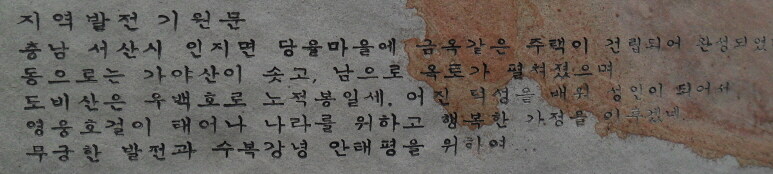 지역발전 기원문
충남 서산시 인지면 당율마을에 금옥같은 주택이 건립되어 완성되었
동으로는 가야산이 솟고, 남으로 옥토가 펼쳐졌으며
도비산은 우백호로 노적봉일세. 어진 덕성을 배워 성인이 되어서
영웅호걸이 태어나 나라를 위하고 행복한 가정을
무궁한 발전과 수복강녕 안태평을 위하여...